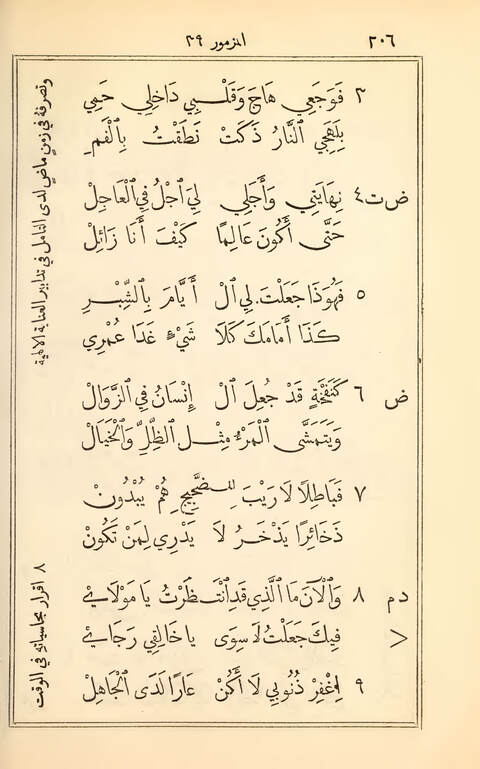 ٢٠٦ المزمور ٣٩
٣ فَوَجَعِي هَاجَ وَقَلْبِي دَاخِلِي حَمِي
بِلَهَجِي ٱلنَّارُ ذَكَتْ نَطَقْتُ بِٱلْفَمِ
ض ت ٤ نِهَايَتِي وَأَجَلِي لِيَ ٱجْلُ فِي ٱلْعَاجِلْ
حَتَّى أَكُونَ عَالِمًا كَيْفَ أَنَا زَائِلْ
٥ فَهُوَذَا جَعَلْتَ لِي ٱلْ أَيَّامَ بِٱلشِّبْرِ
كَذَا أَمَامَكَ كَلَا شَيْءٍ غَدَا عُمْرِي
ض ٦ كَنَفْخَةٍ قَدْ جُعِلَ ٱلْ إِنْسَانُ فِي ٱلزَّوَالْ
وَيَتَمَشَّى ٱلْمَرْءُ مِثْلَ ٱلظِّلِّ وَٱلْخَيَالْ
٧ فَبَاطِلًا لَا رَيْبَ لِلضَّجِيجِ هُمْ يُبْدُونْ
ذَخَائِرًا يَذْخَرُ لَا يَدْرِي لِمَنْ تَكُونْ
د م ٨ وَٱلْآنَ مَا ٱلَّذِي قَدِ ٱنْتَظَرْتُ يَا مَوْلَاءِيْ
> فِيكَ جَعَلْتُ لَا سِوَى يَا خَالِقِي رَجَاءِيْ
٩ إِغْفِرْ ذُنُوبِي لَا أَكُنْ عَارًا لَدَى ٱلْجَاهِلْ
وتصرفهُ في زمنٍ ماضٍ لدى التامل في تدابير العناية الالهية
٨ اقرار بحاسياته في الوقت